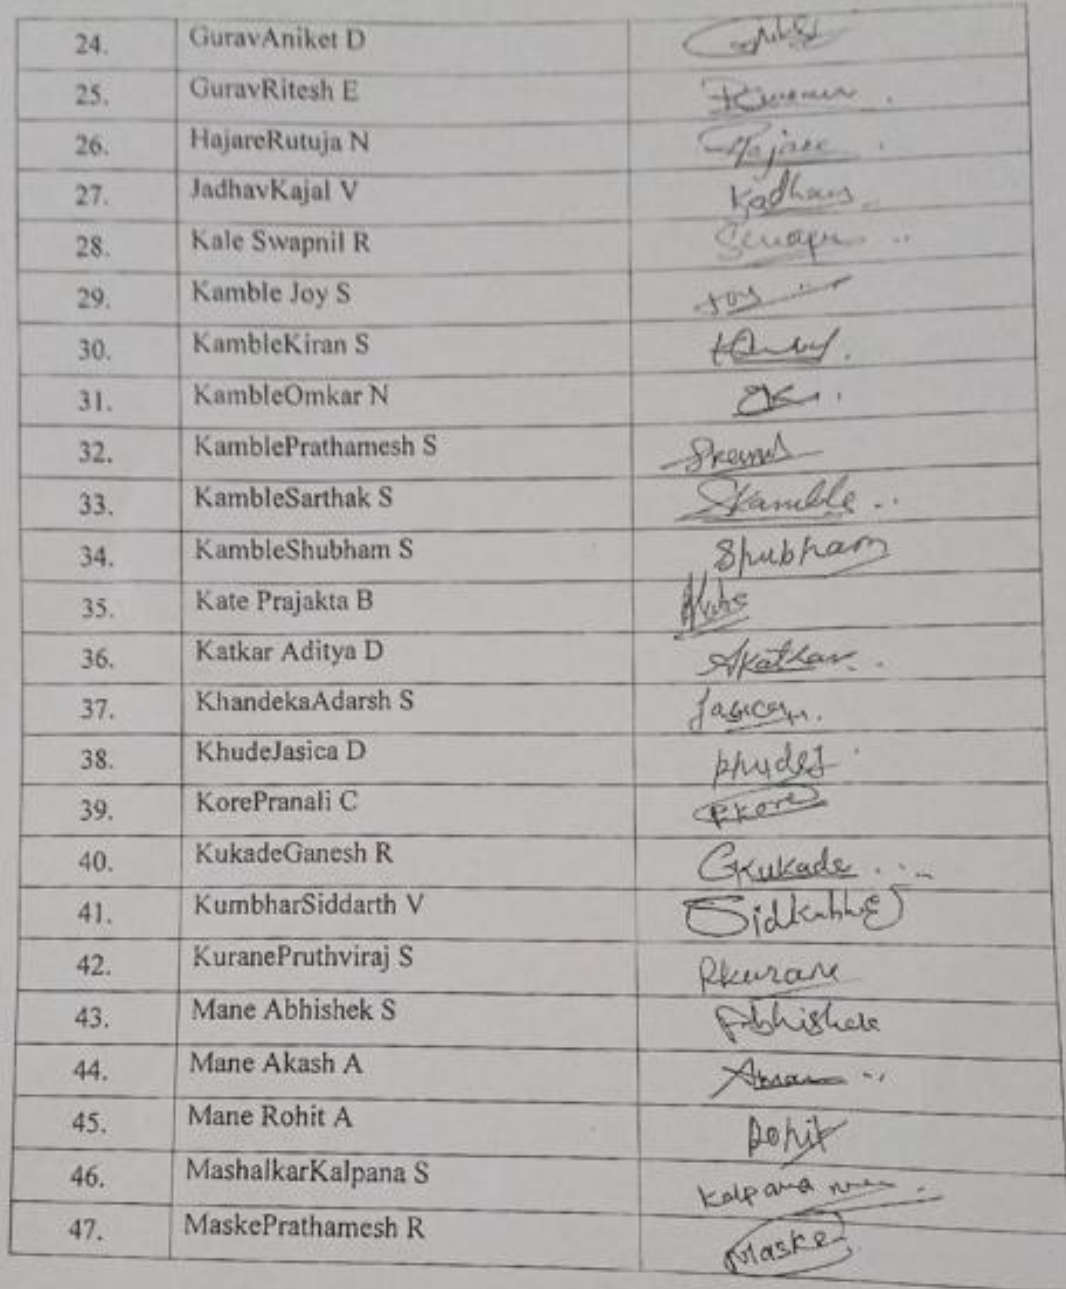 24. GuravAniket D
25. GuravRitesh E
26. HajareRutuja N Hajare
27. JadhavKajal V
28. Kale Swapnil R
29. Kamble Joy S Joy
30. KambleKiran S
31. KambleOmkar N
32. KamblePrathamesh S
33. KambleSarthak S Skamble
34. KambleShubham S Shubham
35. Kate Prajakta B
36. Katkar Aditya D AKatkar
37. KhandekaAdarsh S
38. KhudeJasica D khudeJ
39. KorePranali C PKore
40. KukadeGanesh R GKukade
41. KumbharSiddarth V
42. KuranePruthviraj S Pkurane
43. Mane Abhishek S Abhishek
44. Mane Akash A
45. Mane Rohit A Rohit
46. MashalkarKalpana S Kalpana
47. MaskePrathamesh R Maske